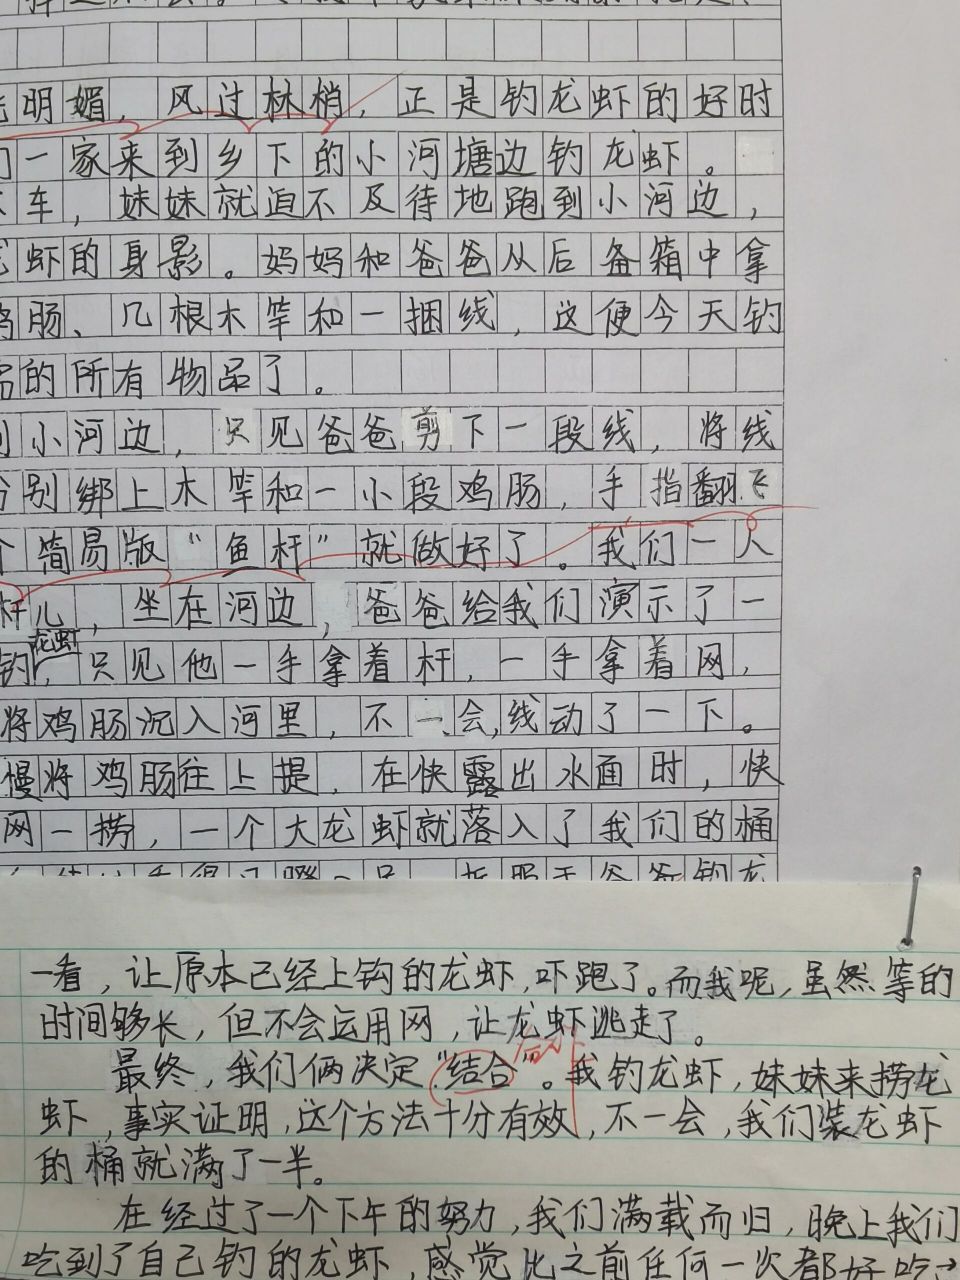 明媚，风过林梢，正是钓龙虾的好时
一家来到乡下的小河塘边钓龙虾。
车，妹妹就迫不及待地跑到小河边，
虾的身影。妈妈和爸爸从后备箱中拿
肠、几根木竿和一捆线，这便今天钓
的所有物品了。
小河边，只见爸爸剪下一段线，将线
别绑上木竿和一小段鸡肠，手指翻飞
个简易版“鱼杆”就做好了。我们一人
杆儿，坐在河边，爸爸给我们演示了一
龙虾
钓，只见他一手拿着杆，一手拿着网，
将鸡肠沉入河里，不一会，线动了一下。
慢将鸡肠往上提，在快露出水面时，快
网一捞，一个大龙虾就落入了我们的桶
一看，让原本已经上钩的龙虾，吓跑了。而我呢，虽然等的
时间够长，但不会运用网，让龙虾逃走了。
最终，我们俩决定“结合”。我钓龙虾，妹妹来捞龙
虾，事实证明，这个方法十分有效，不一会，我们装龙虾
的桶就满了一半。
在经过了一个下午的努力，我们满载而归，晚上我们
吃到了自己钓的龙虾，感觉比之前任何一次都好吃